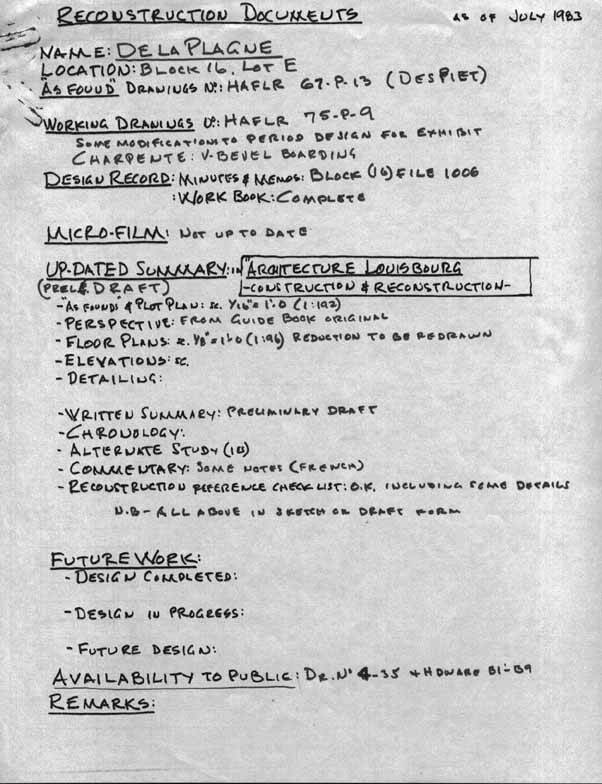 RECONSTRUCTION DOCUMENTS AS OF JULY 1983
NAME: DE LA PLAGNE
LOCATION: BLOCK 16, LOT E
"AS FOUUD" DRAWINGS No: HAFLR 67-P-13 (DESPIET)
WORKING DRAWINGS No: HAFLR 75-P-9
SOME MODIFICATIONS TO PERIOD DESIGN FOR EXHIBIT
CHARPENTE: V-BEVEL BOARDING
DESIGN RECORD: MINUTES & MEMOS: BLOCK (16) FILE 1006
: WORK BOOK: COMPLETE
MICRO-FILM: NOT UP TO DATE
UP-DATED SUMMARY: IN "ARCHITECTURE LOUISBOURG
(PREL & DRAFT) -CONSTRUCTION & RECONSTRUCTION-
- "AS FOUNDS" & PLOT PLAN: SC. 1/16" = 1'-0 (1:192)
- PERSPECTIVE: FROM GUIDE BOOK ORIGINAL
- FLOOR PLANS: SC. 1/8" = 1'-0 (1:96) REDUCTION TO BE REDRAWN
- ELEVATIONS: SC.
- DETAILING:
- WRITTEN SUMMARY: PRELIMINARY DRAFT
- CHRONOLOGY:
- ALTERNATE STUDY (1B)
- COMMENTARY: SOME NOTES (FRENCH)
- RECONSTRUCTION REFERENCE CHECK LIST: O.K. INCLUDING SOME DETAILS
N.B - ALL ABOVE IN SKETCH OR DRAFT FORM
FUTURE WORK:
- DESIGN COMPLETED:
- DESIGN IN PROGRESS:
- FUTURE DESIGN:
AVAILABILITY TO PUBLIC: DR. No 4-35 + HDWARE B1-B9
REMARKS: